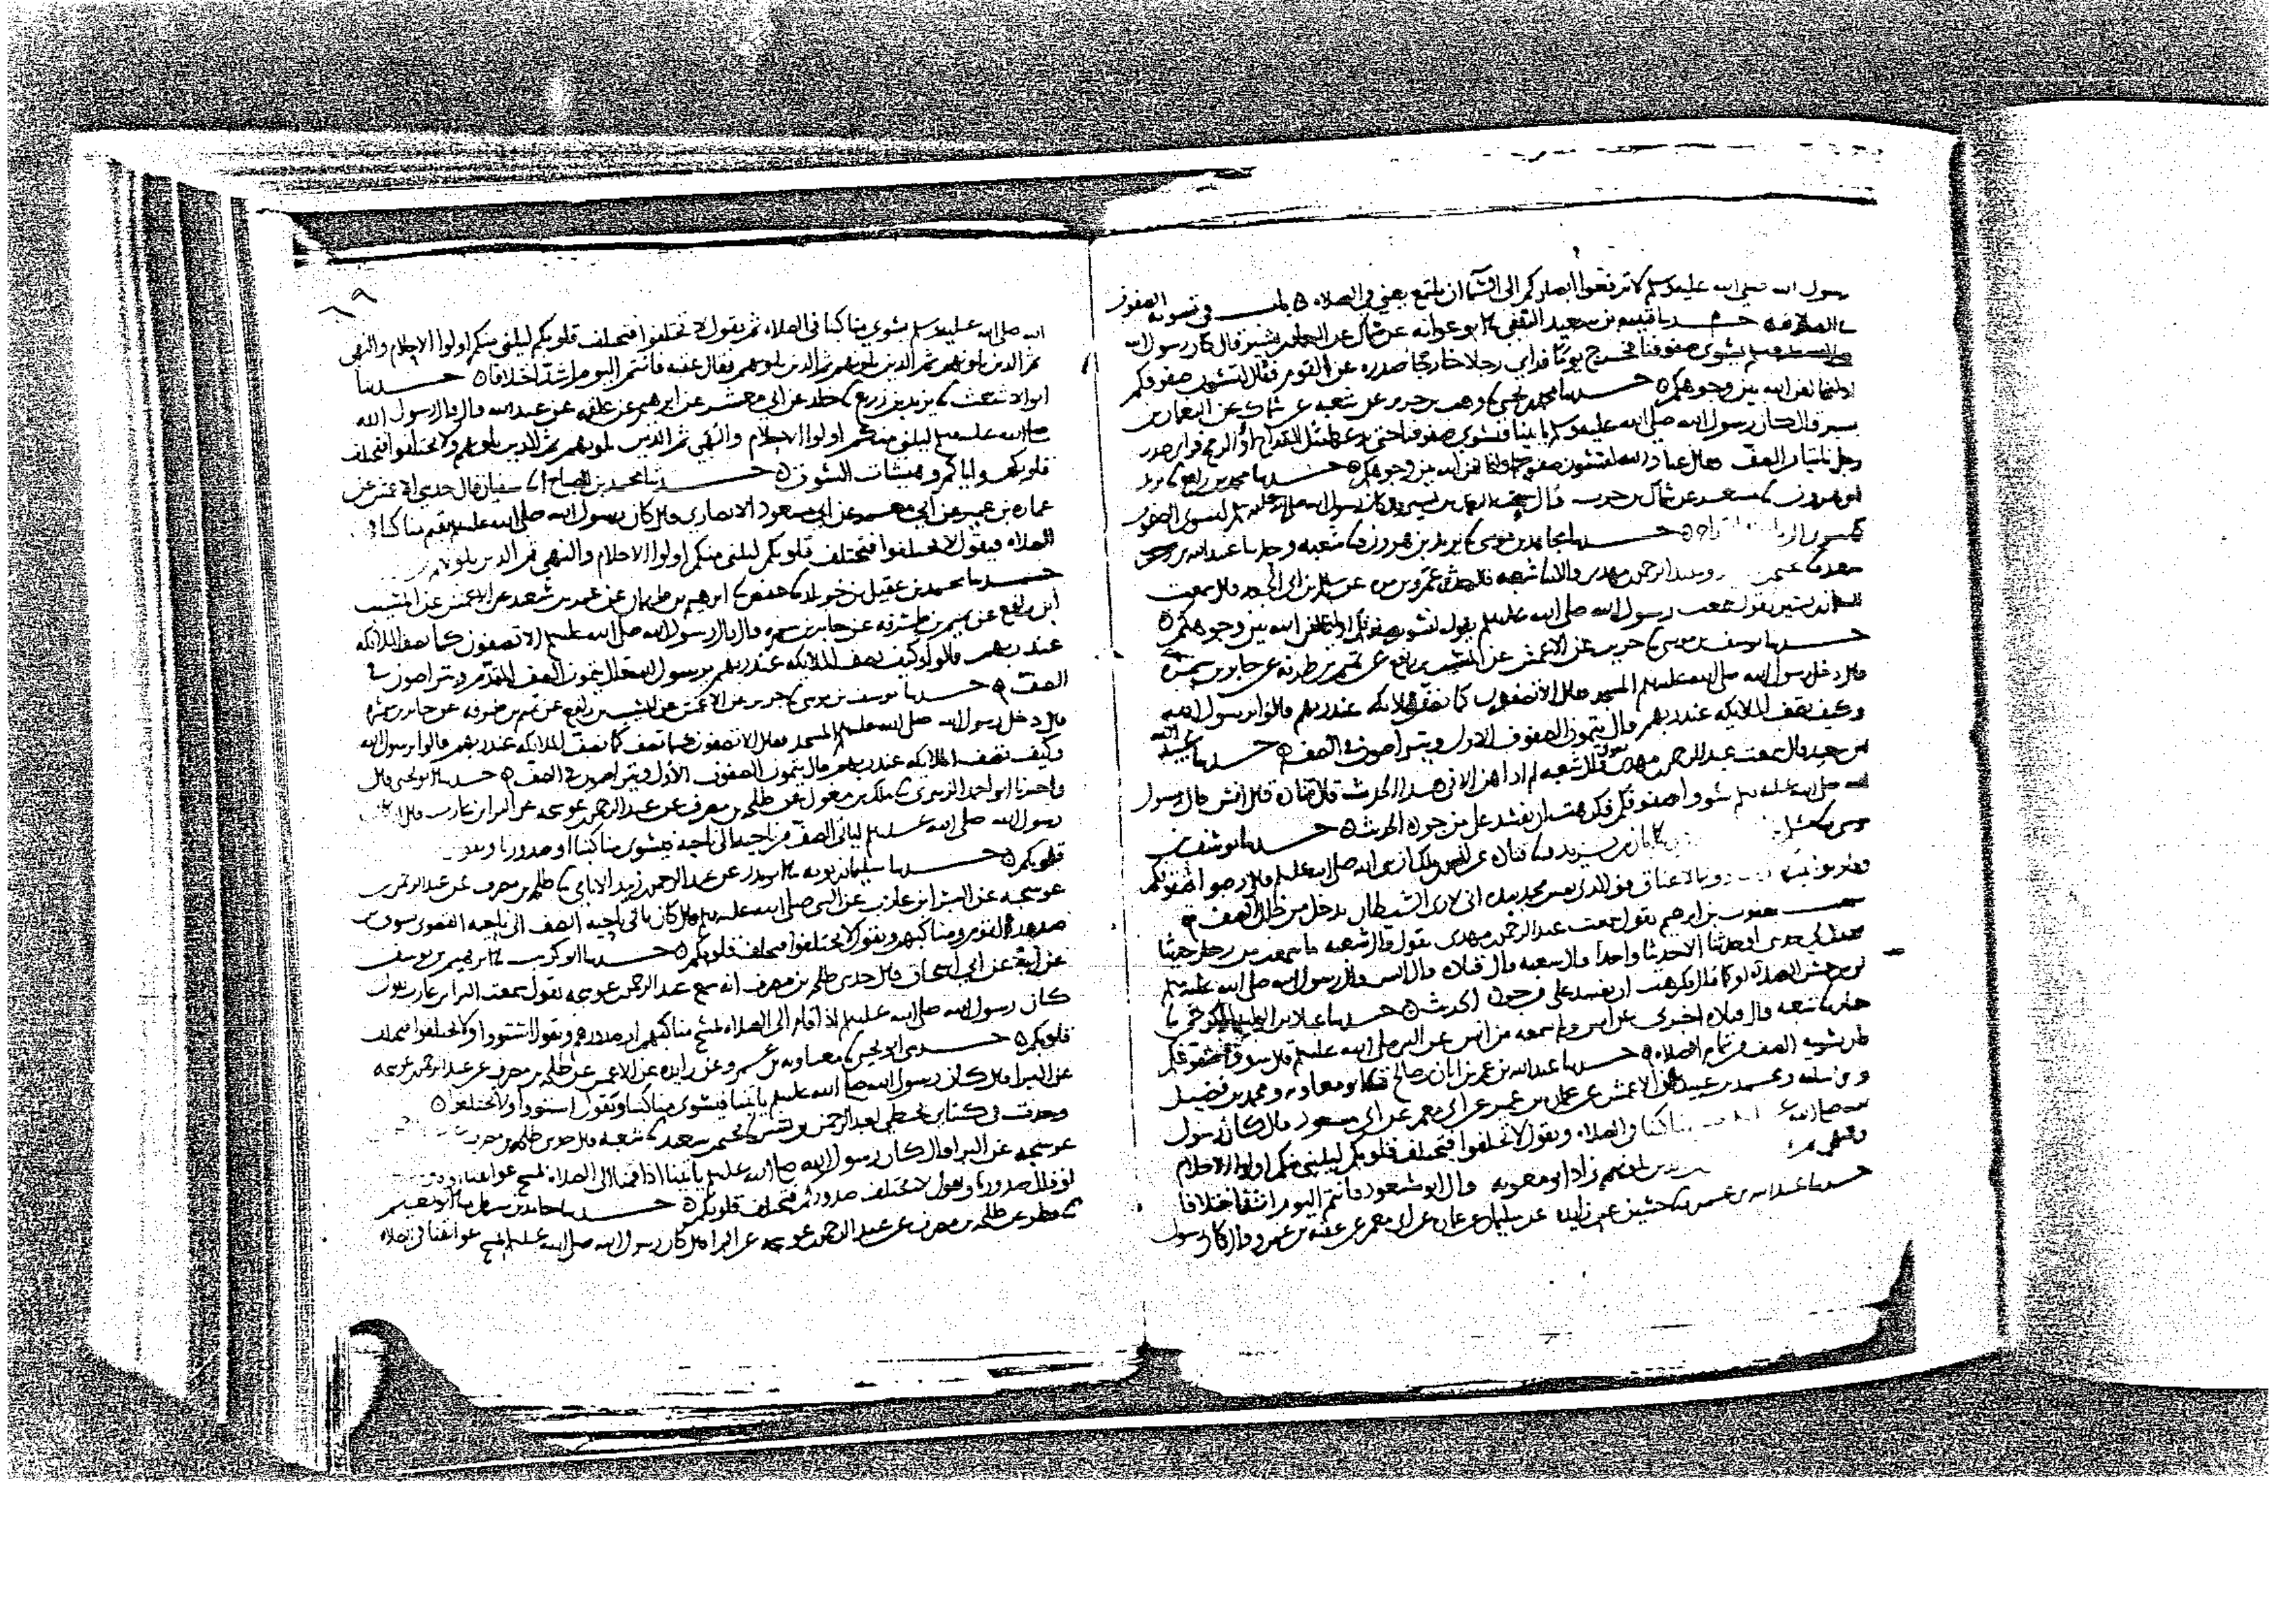 رسول الله صلى الله عليه وسلم لا ترفعوا ابصاركم الى السماء ان يلتمع يعني في الصلاه باب في تسويه الصفوف
حدثنا قتيبه بن سعيد الثقفي ابو عوانه عن سماك عن النعمان بن بشير قال كان رسول الله
صلى الله عليه وسلم يسوي صفوفنا فخرج يوما فراي رجلا خارجا صدره عن القوم فقال لتسون صفوفكم
او ليخالفن الله بين وجوهكم حدثنا محمد بن يحيى وهب بن جرير عن شعبه عن سماك عن النعمان بن
بشير قال كان رسول الله صلى الله عليه وسلم ياتينا فيسوي صفوفنا حتى يدعها مثل القداح او الرمح فراي صدر
رجل ناتيا من الصف فقال عباد الله لتسون صفوفكم او ليخالفن الله بين وجوهكم حدثنا محمد بن رافع يزيد
ابن هرون مسعر عن سماك بن حرب قال سمعت النعمان بن بشير قال كان رسول الله صلى الله عليه وسلم يسوي الصفوف
حدثنا مجاهد بن موسى يزيد بن هرون شعبه وحدثنا عبد الله بن
وعبد الرحمن بن مهدي قالا شعبه قال حدثني عمرو بن مره عن سالم بن ابي الجعد قال سمعت
النعمان بن بشير يقول سمعت رسول الله صلى الله عليه وسلم يقول لتسون صفوفكم او ليخالفن الله بين وجوهكم
حدثنا يوسف بن موسى جرير عن الاعمش عن المسيب بن رافع عن تميم بن طرفه عن جابر بن سمره
قال دخل رسول الله صلى الله عليه وسلم المسجد فقال الا تصفون كما تصف الملائكه عند ربهم قالوا يرسول الله
وكيف تصف الملائكه عند ربهم قال يتمون الصفوف الاول ويتراصون في الصف حدثنا عبيد الله
بن سعيد قال سمعت عبد الرحمن بن مهدي يقول قال شعبه لم اداهن الا في هذا الحديث قال قتاده قال انس قال رسول
الله صلى الله عليه وسلم سووا صفوفكم فكرهت ان يفسد علي من جوده الحديث حدثنا يوسف بن
موسى ابان بن يزيد قتاده عن انس بن ملك ان نبي الله صلى الله عليه وسلم قال رصوا صفوفكم
وقاربوا بينها وحاذوا بالاعناق فوالذي نفس محمد بيده اني لارى الشيطان يدخل من خلل الصف
سمعت يعقوب بن ابرهيم يقول سمعت عبد الرحمن بن مهدي يقول قال شعبه ما سمعت من رجل حديثا
الا حديثا واحدا قال شعبه قال قتاده قال انس قال رسول الله صلى الله عليه وسلم
ان من حسن الصلاه او كما قال فكرهت ان يفسد علي من جوده الحديث
شعبه قال قتاده اخبرني عن انس ولم اسمعه من انس عن النبي صلى الله عليه وسلم قال سووا صفوفكم
فان تسويه الصف من تمام الصلاه حدثنا عبد الله بن عمر بن ابان بن صالح ابو معاويه ومحمد بن فضيل
ومحمد بن عبيد عن الاعمش عن عماره بن عمير عن ابي معمر عن ابي مسعود قال كان رسول
الله صلى الله عليه مناكبنا في الصلاه ويقول لا تختلفوا فتختلف قلوبكم ليليني منكم اولوا الاحلام
والنهى زاد ابو معويه قال ابو مسعود فانتم اليوم اشد اختلافا
حدثنا عبد الله بن حسين عن زايده عن سليمان عن عماره عن ابي معمر عن عقبه بن عمرو قال كان رسول
٦٩
الله صلى الله عليه وسلم يسوي مناكبنا في الصلاه ثم يقول لا تختلفوا فتختلف قلوبكم ليليني منكم اولوا الاحلام والنهى
ثم الذين يلونهم ثم الذين يلونهم ثم الذين يلونهم فقال عقبه فانتم اليوم اشد اختلافا حدثنا
ابو الاشعث يزيد بن زريع خالد عن ابي معشر عن ابرهيم عن علقمه عن عبد الله قال قال رسول الله
صلى الله عليه وسلم ليليني منكم اولوا الاحلام والنهى ثم الذين يلونهم ثم الذين يلونهم ولا تختلفوا فتختلف
قلوبكم واياكم وهيشات السوق حدثنا محمد بن الصباح سفيان قال حدثني الاعمش عن
عماره بن عمير عن ابي معمر عن ابي مسعود الانصاري قال كان رسول الله صلى الله عليه وسلم يقيم مناكبنا في
الصلاه فيقول لا تختلفوا فتختلف قلوبكم ليليني منكم اولوا الاحلام والنهى ثم الذين يلونهم
حدثنا محمد بن عقيل بن خويلد حفص ابرهيم بن طهمان عن عمر بن سعيد عن الاعمش عن المسيب
ابن رافع عن تميم بن طرفه عن جابر بن سمره قال قال رسول الله صلى الله عليه وسلم الا تصفون كما تصف الملائكه
عند ربهم قالوا وكيف تصف الملائكه عند ربهم يرسول الله قال يتمون الصف المقدم ويتراصون في
الصف حدثنا يوسف بن موسى جرير عن الاعمش عن المسيب بن رافع عن تميم بن طرفه عن جابر بن سمره
قال دخل رسول الله صلى الله عليه وسلم المسجد فقال الا تصفون كما تصف الملائكه عند ربهم قالوا يرسول الله
وكيف تصف الملائكه عند ربهم قال يتمون الصفوف الاول ويتراصون في الصف حدثنا ابو يحيى قال
واخبرنا ابو احمد الزبيري ملك بن مغول عن طلحه بن مصرف عن عبد الرحمن بن عوسجه عن البرا بن عازب قال كان
رسول الله صلى الله عليه وسلم ياتي الصف من ناحيه الى ناحيه فيسوي مناكبنا او صدورنا
قلوبكم حدثنا سليمان بن توبه عن عبد الرحمن بن زبيد الايامي طلحه بن مصرف عن عبد الرحمن بن
عوسجه عن البرا بن عازب عن النبي صلى الله عليه وسلم قال كان ياتي ناحيه الصف الى ناحيه القصوى يسوي بين
صدور القوم ومناكبهم ويقول لا تختلفوا فتختلف قلوبكم حدثنا ابو كريب ابرهيم بن يوسف
عن ابيه عن ابي اسحاق قال حدثني طلحه بن مصرف انه سمع عبد الرحمن بن عوسجه يقول سمعت البرا بن عازب يقول
كان رسول الله صلى الله عليه وسلم اذا قام الى الصلاه مسح مناكبهم او صدورهم ويقول استووا ولا تختلفوا فتختلف
قلوبكم حدثني ابو يحيى معاويه بن عمرو عن زايده عن الاعمش عن طلحه بن مصرف عن عبد الرحمن بن عوسجه
عن البرا قال كان رسول الله صلى الله عليه وسلم ياتينا فيسوي مناكبنا ويقول استووا ولا تختلفوا
وجدت في كتابي بخطي لعبد الرحمن بن بشر يحيى بن سعيد شعبه قال حدثني طلحه بن مصرف
عوسجه عن البرا قال كان رسول الله صلى الله عليه وسلم ياتينا اذا قمنا الى الصلاه فيمسح عواتقنا
او قال صدورنا ويقول لا تختلف صدوركم فتختلف قلوبكم حدثنا ابو نعيم
فطر عن طلحه بن مصرف عن عبد الرحمن بن عوسجه عن البرا قال كان رسول الله صلى الله عليه وسلم يمسح عواتقنا في الصلاه